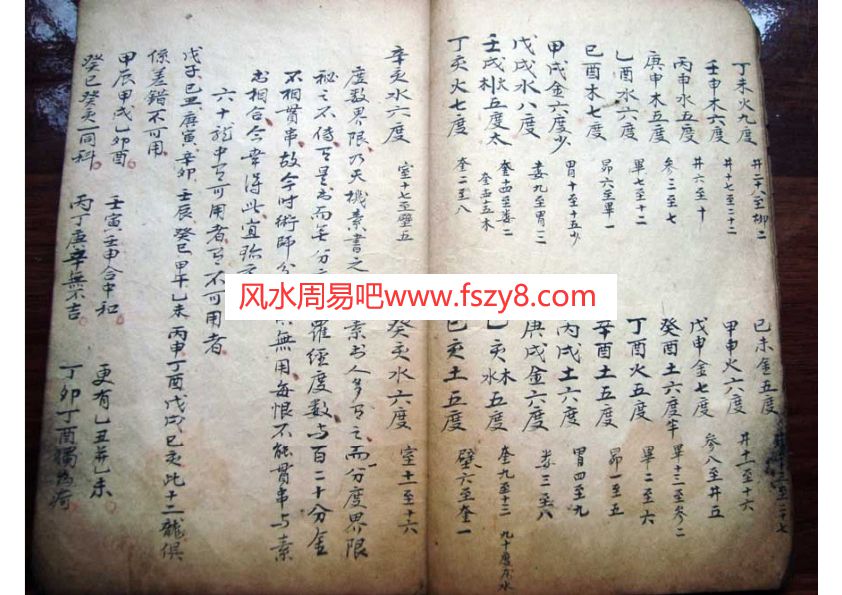 丁未火九度 井二十八至柳二
壬申木六度 井十七至二十二
丙申水五度 井六至十
庚申木五度 參三至七
乙酉水六度 畢七至十二
己酉木七度 昴六至畢一
甲戌金六度少 胃十至十五少
戊戌水八度 婁九至胃二
壬戌木五度太 奎十四至婁二
丁亥火七度 奎二至八
己未金五度
甲申火六度 井十一至十六
戊申金七度 參八至井五
癸酉土六度半 畢十三至參二
丁酉火五度 畢二至六
辛酉土五度 昴一至五
丙戌土六度 胃四至九
庚戌金六度 婁三至八
乙亥水五度 奎九至十三
己亥土五度 壁六至奎一
辛亥水六度 室十七至壁五
癸亥水六度 室十一至十六
度数界限乃天機素書之 素書人多有之而分度界限
秘之不傳 羅經度数与百二十分金
不相貫串故今時術師分 無用每恨不能貫串与素
書相合今幸得此宜珍
六十龍中有可用者有不可用者
戊子己丑庚寅辛卯壬辰癸巳甲午乙未丙申丁酉戊戌己亥此十二龍俱
係差錯不可用
甲辰甲戌乙卯酉 壬寅壬申合中和 更有乙丑並乙未
癸巳癸亥一同科 丙丁庚辛無不吉 丁卯丁酉獨為奇
风水周易吧www.fszy8.com